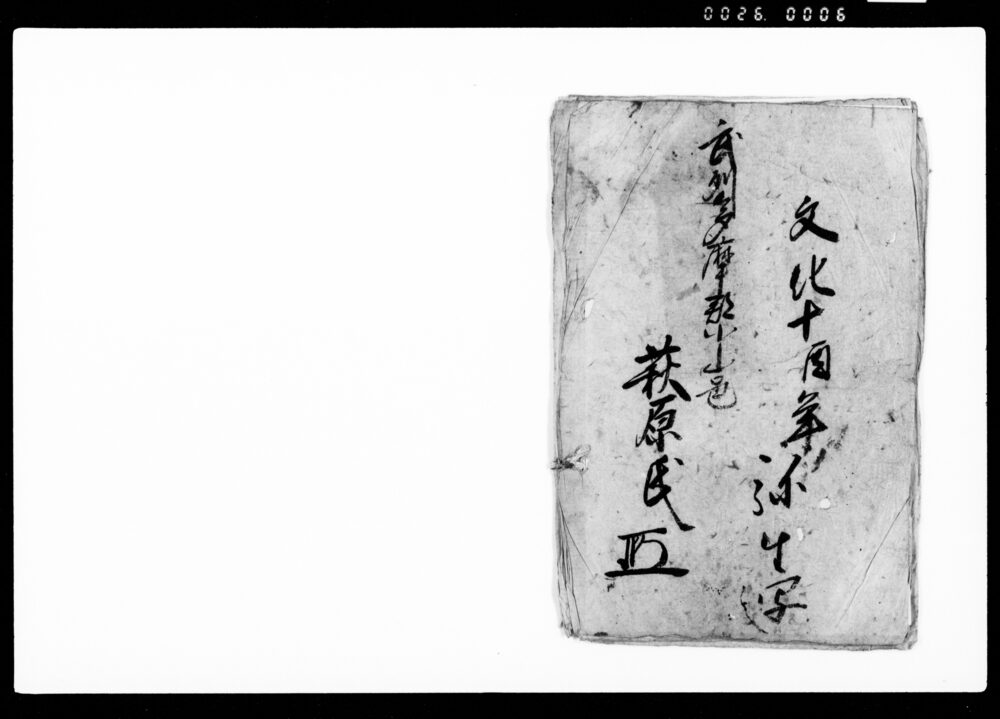 0026. 0006
文化十酉年弥生写
武州多摩郡小山邑
萩原氏